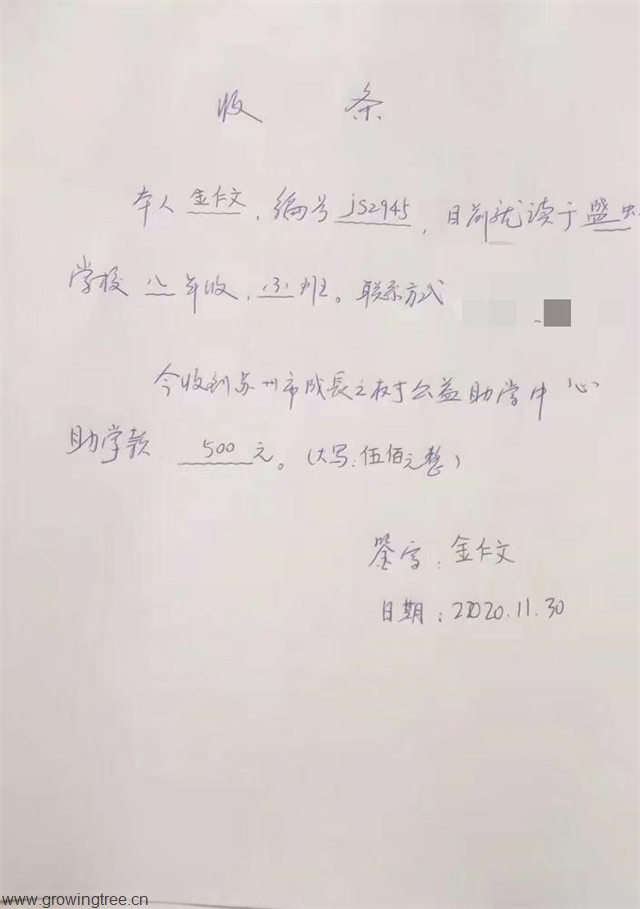 收 条
本人金仁文，编号js2945，目前就读于盛虫
学校八年收，(3)班。联系方式
今收到苏州市成长之树公益助学中心
助学款 500元。（大写：伍佰元整）
鉴字：金仁文
日期：22020.11.30
www.growingtree.cn